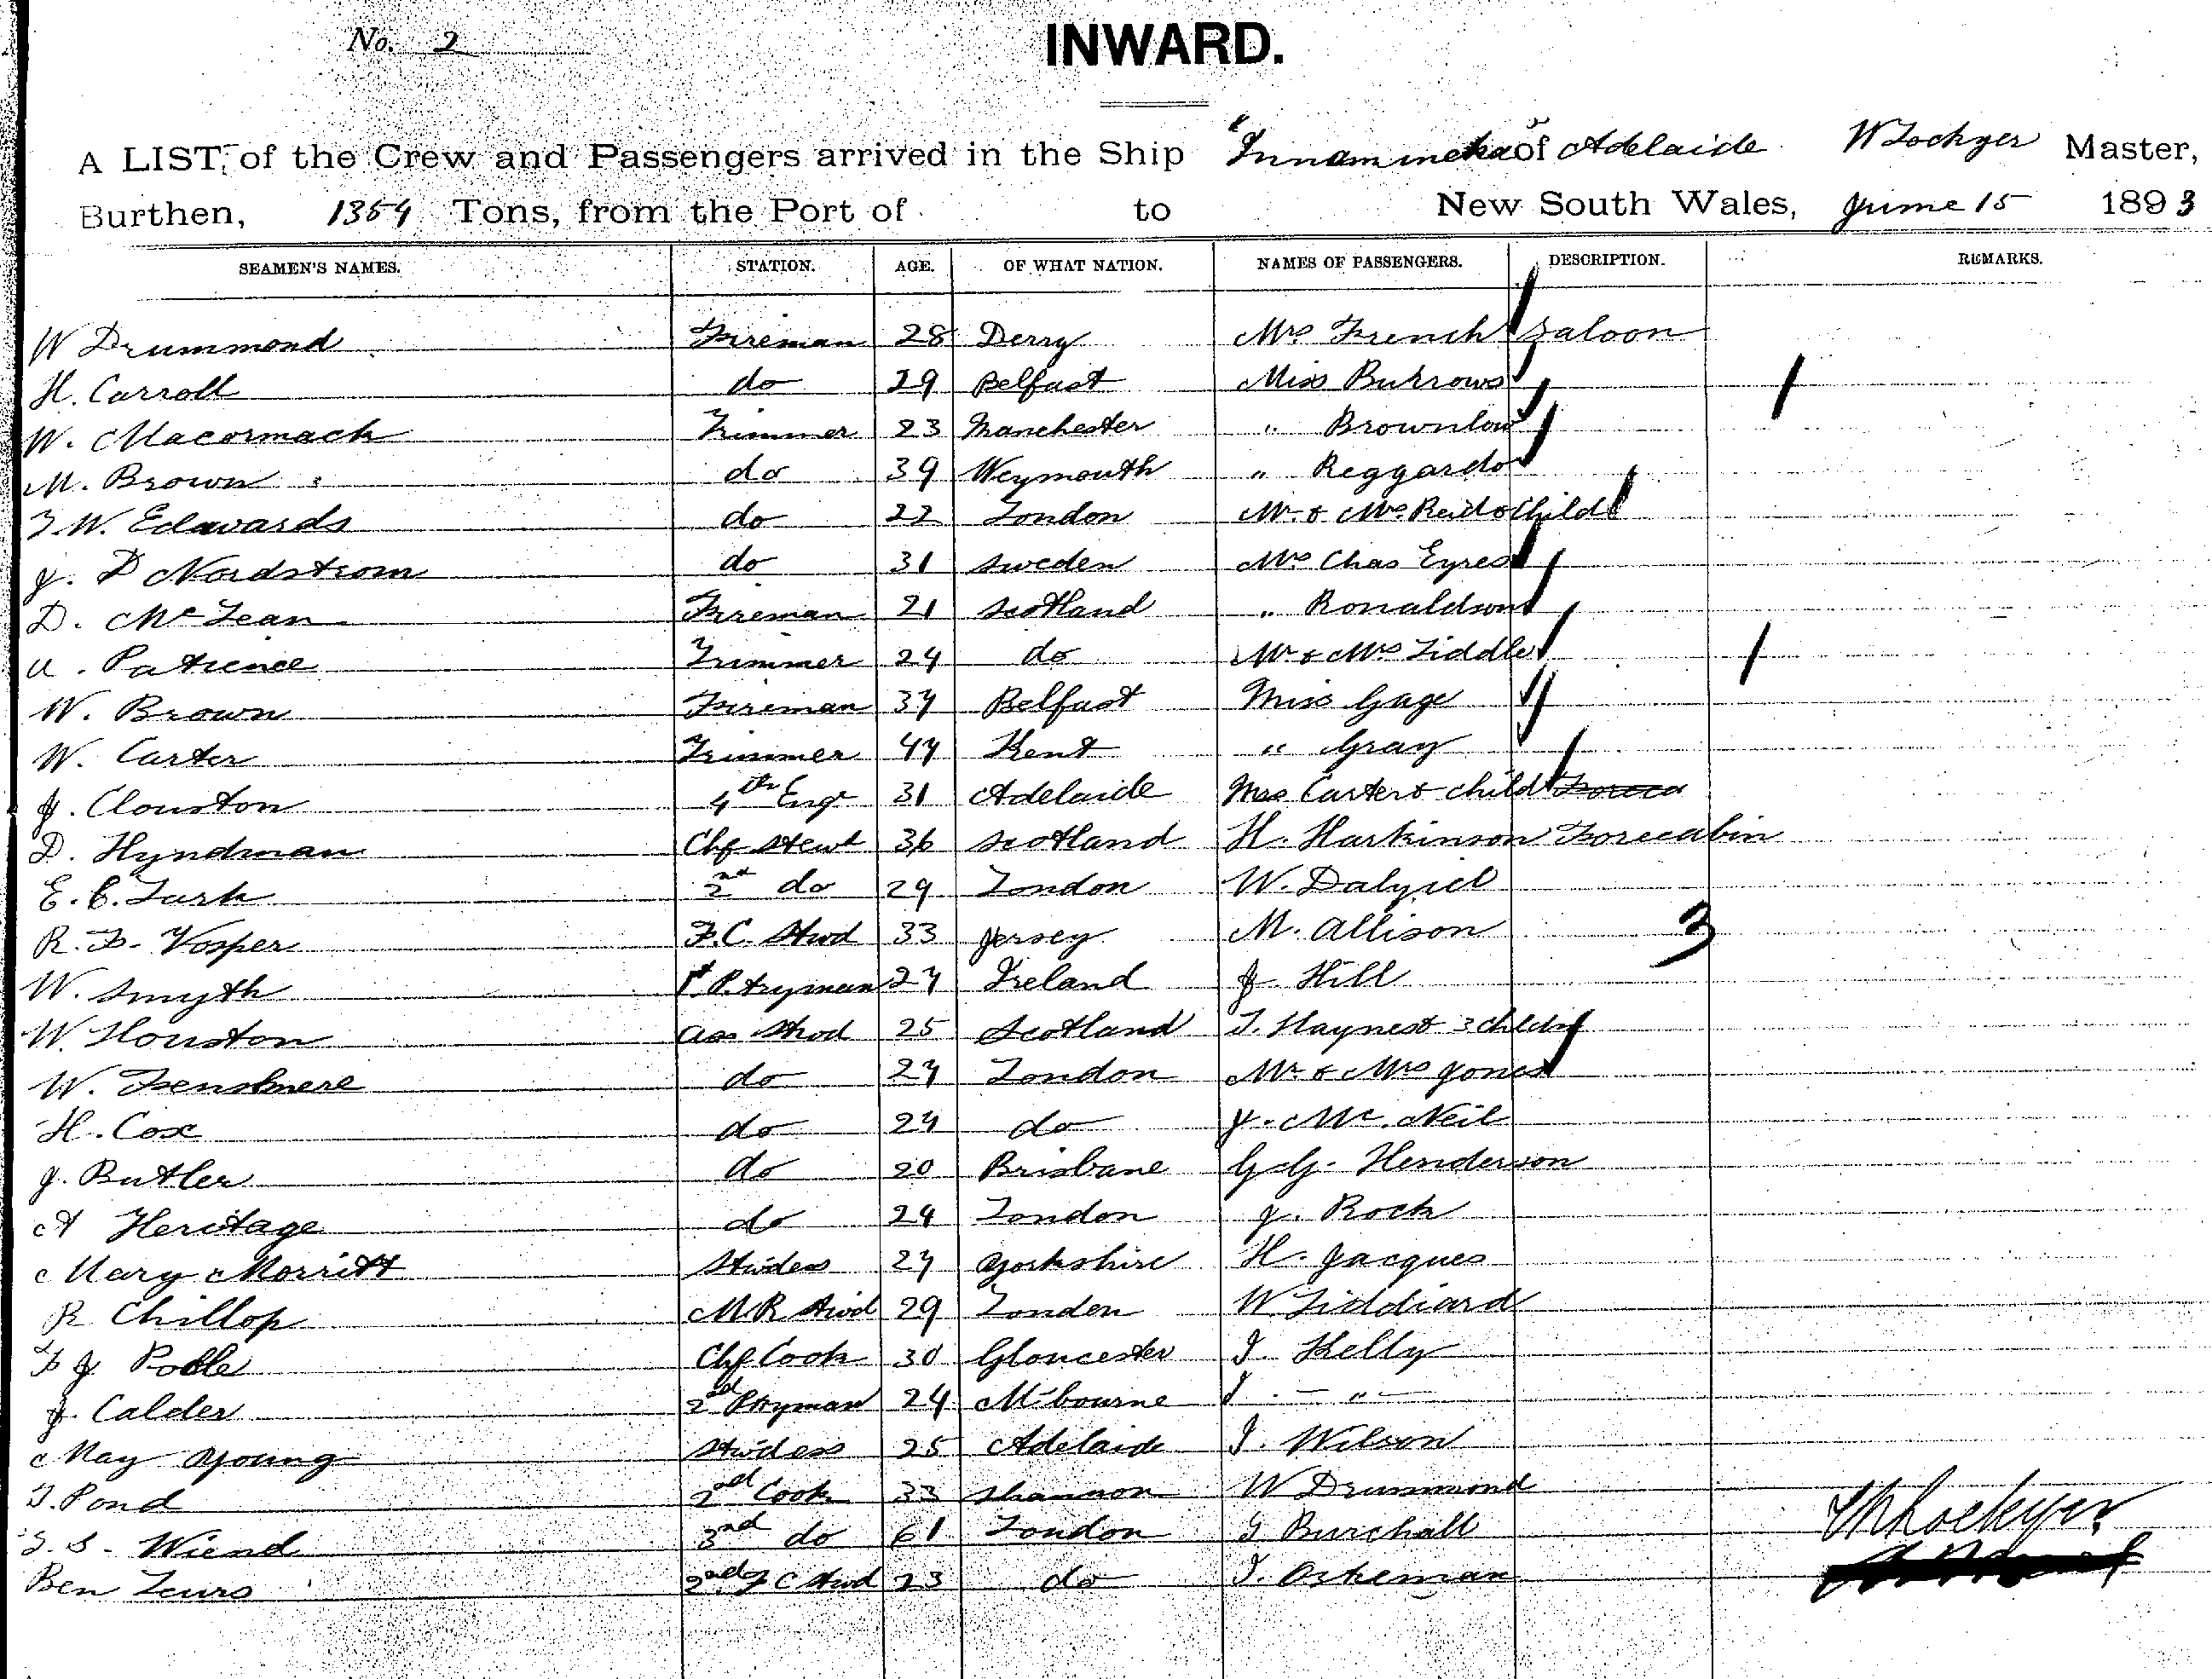 No. 2
INWARD.
A LIST, of the Crew and Passengers arrived in the Ship "Innamincka of Adelaide W Lockyer Master,
Burthen, 1354 Tons, from the Port of to New South Wales, June 15 1893
SEAMEN'S NAMES. STATION. AGE. OF WHAT NATION. NAMES OF PASSENGERS. DESCRIPTION. REMARKS.
W Drummond Fireman 28 Derry Mrs French Saloon
H. Carroll do 29 Belfast Miss Burrows
W. Macormack Trimmer 23 Manchester " Brownlow
M. Brown do 39 Weymouth " Reggardo
T.W. Edawards do 22 London Mr & Mrs Reid & Child
J. D Nordstrom do 31 Sweden Mrs Chas Eyres
D. McLean Fireman 21 Scotland " Ronaldson
A. Patience Trimmer 24 do Mr & Mrs Liddle
W. Brown Fireman 34 Belfast Miss Gage
W. Carter Trimmer 44 Kent " Gray
J. Clouston 4th Engr 31 Adelaide Mrs Carter & child
D. Hyndman Chf Stewt 36 Scotland H. Harkinson Forecabin
E. C. Turk 2nd do 29 London W. Dalziel
R. F. Vosper F.C. Stwd 33 Jersey M. Allison 3
W. Smyth 1st P.tryman 24 Ireland J. Hill
W. Houston Ass Stwd 25 Scotland T. Haynes & 3 childn
W. Fenshmere do 24 London Mr & Mrs Jones
H. Cox do 24 do J. Mc.Neil
J. Butler do 20 Brisbane G. G. Henderson
A Heritage do 24 London J. Rock
Mary Morritt Stwdess 24 Yorkshire H. Jacques
R Chillop M.R Stwd 29 London W Liddiard
F J Poole Chf Cook 30 Gloucester J. Kelly
J. Calder 2nd Ptryman 24 M'bourne J. - " -
May Young Stwdess 25 Adelaide J. Wilson
T. Pond 2nd Cook 33 Shannon W Drummond
T. S. Wiend 3rd do 61 London G Burchall
Ben Lewis 2nd F C Stwd 23 do T. Orkeman
W Lockyer